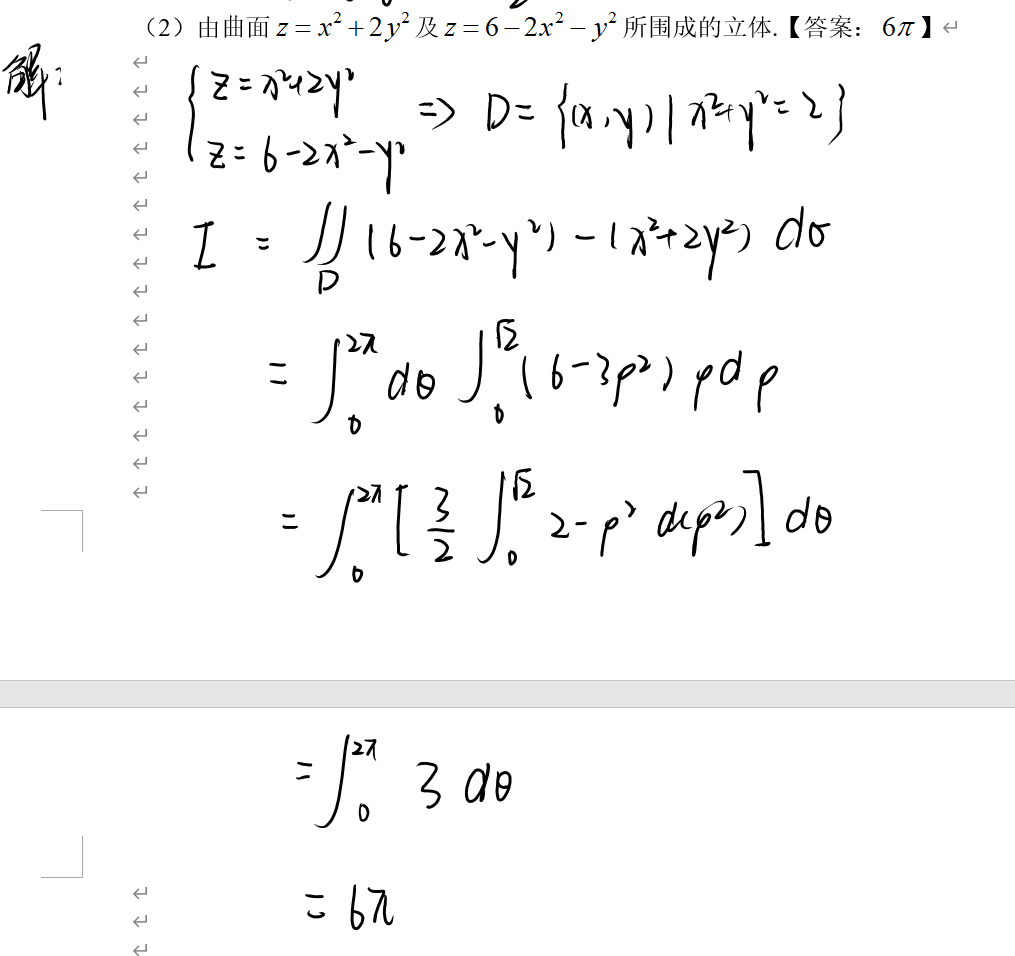 （2）由曲面 z = x² + 2y² 及 z = 6 − 2x² − y² 所围成的立体.【答案：6π】
解：
{ z = x²+2y²
z = 6-2x²-y² => D = {(x,y) | x²+y² = 2}
I = ∬_D (6-2x²-y²) - (x²+2y²) dσ
= ∫₀^{2π} dθ ∫₀^{√2} (6-3ρ²) ρ dρ
= ∫₀^{2π} [ 3/2 ∫₀^{√2} 2-ρ² d(ρ²) ] dθ
= ∫₀^{2π} 3 dθ
= 6π